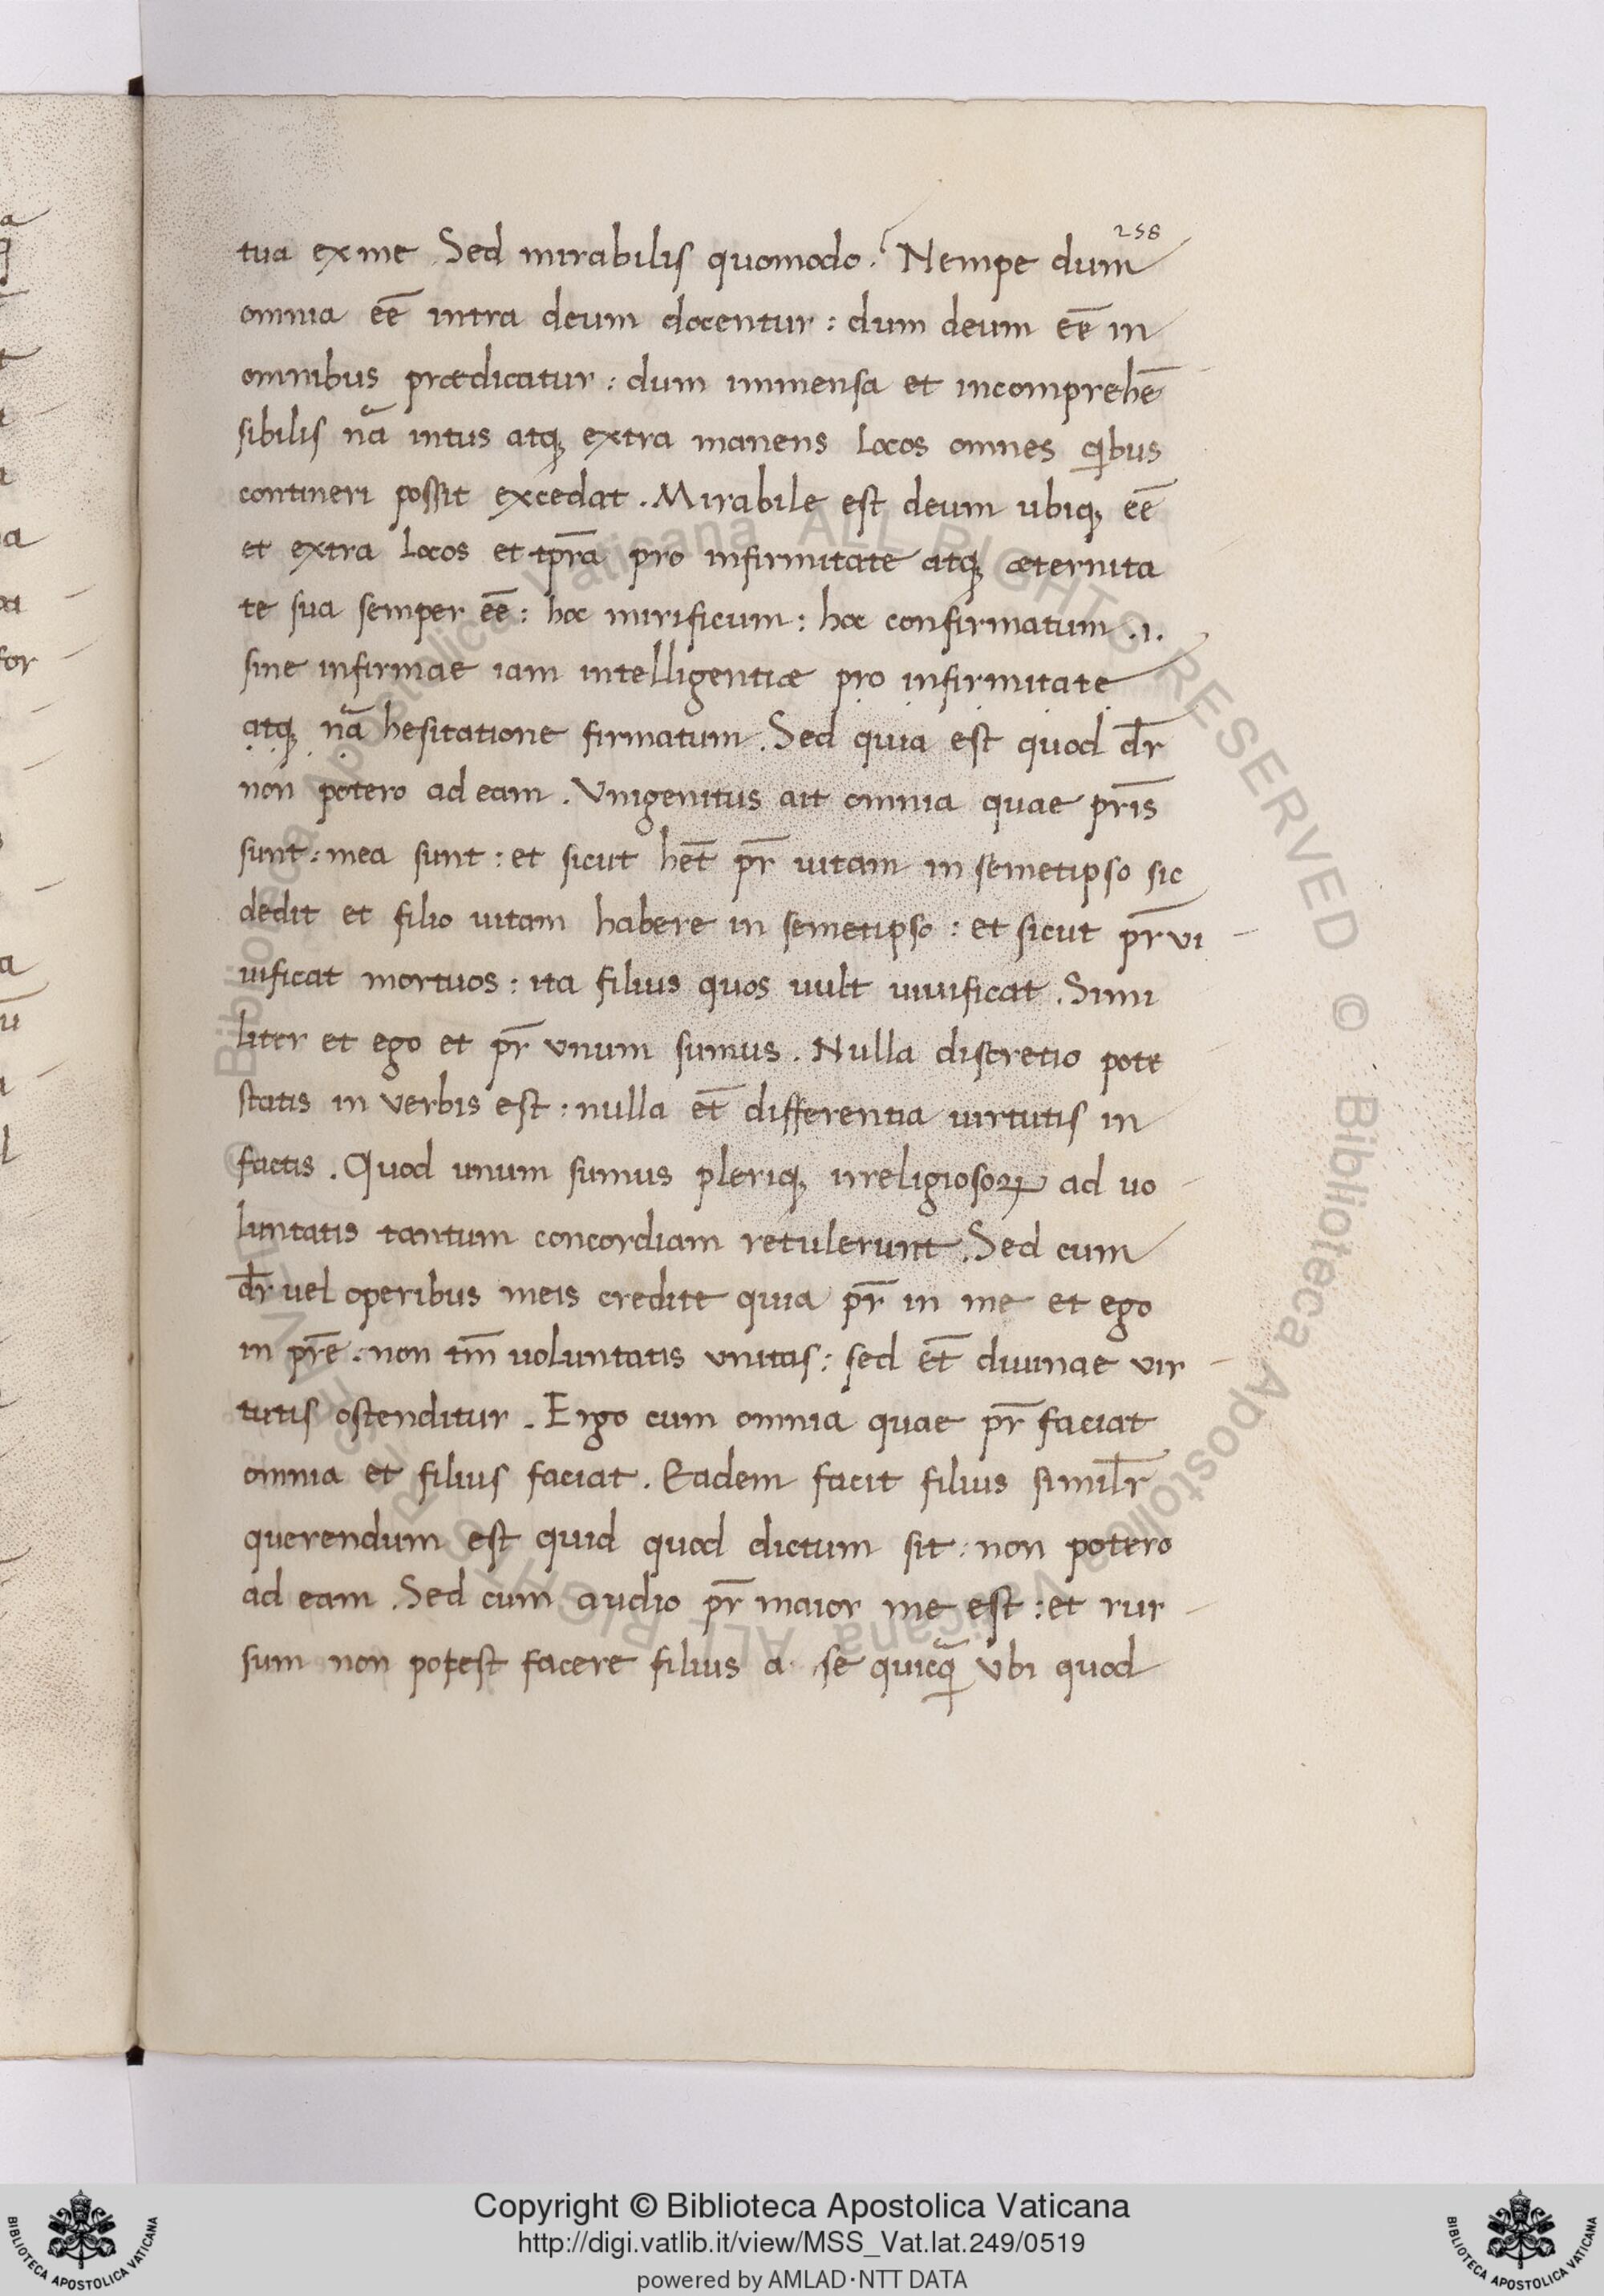 258
tua ex me . Sed mirabilis quomodo ? Nempe dum
omnia eē intra deum docentur : dum deum eē in
omnibus prædicatur : dum immensa et incomprehē
sibilis nā intus atq; extra manens locos omnes qibus
contineri possit excedat . Mirabile est deum ubiq; eē
et extra locos et tp̄ra pro infirmitate atq; æternita
te sua semper eē : hoc mirificum : hoc confirmatum .i.
sine infirmae iam intelligentiæ pro infirmitate
atq; nā hesitatione firmatum . Sed quia est quod dr̄
non potero ad eam . Vnigenitus ait omnia quae pr̄is
sunt : mea sunt : et sicut het̄ pr̄ uitam in semetipso sic
dedit et filio uitam habere in semetipso : et sicut pr̄ vi
uificat mortuos : ita filius quos uult uiuificat . Simi
liter et ego et pr̄ vnum sumus . Nulla discretio pote
statis in verbis est : nulla et̄ differentia uirtutis in
factis . Quod unum sumus pleriq; irreligiosoꝝ ad uo
luntatis tantum concordiam retulerunt . Sed cum
dr̄ uel operibus meis credite quia pr̄ in me et ego
in pr̄e . non tm̄ uoluntatis vnitas : sed et̄ diuinae vir
tutis ostenditur . Ergo cum omnia quae pr̄ faciat
omnia et filius faciat . Eadem facit filius simil̄r
querendum est quid quod dictum sit : non potero
ad eam . Sed cum audio pr̄ maior me est : et rur
sum non potest facere filius a se quicq̄ vbi quod
Copyright © Biblioteca Apostolica Vaticana
http://digi.vatlib.it/view/MSS_Vat.lat.249/0519
powered by AMLAD·NTT DATA